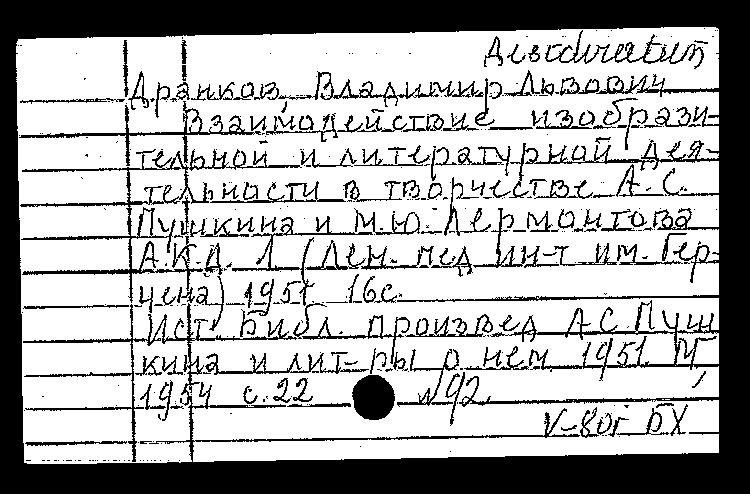 Дранков, Владимир Львович
Взаимодействие изобрази-
тельной и литературной дея-
тельности в творчестве А.С.
Пушкина и М.Ю. Лермонтова
А.К.Д. Л. (Лен. пед ин-т им. Гер-
цена) 1951 16с.
Ист. Библ. произвед А С Пуш
кина и лит-ры о нем. 1951. М,
1954 с.22 №92.
V-80г БХ